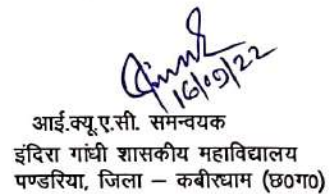 16/09/22
आई.क्यू.ए.सी. समन्वयक
इंदिरा गांधी शासकीय महाविद्यालय
पण्डरिया, जिला – कबीरधाम (छ०ग०)